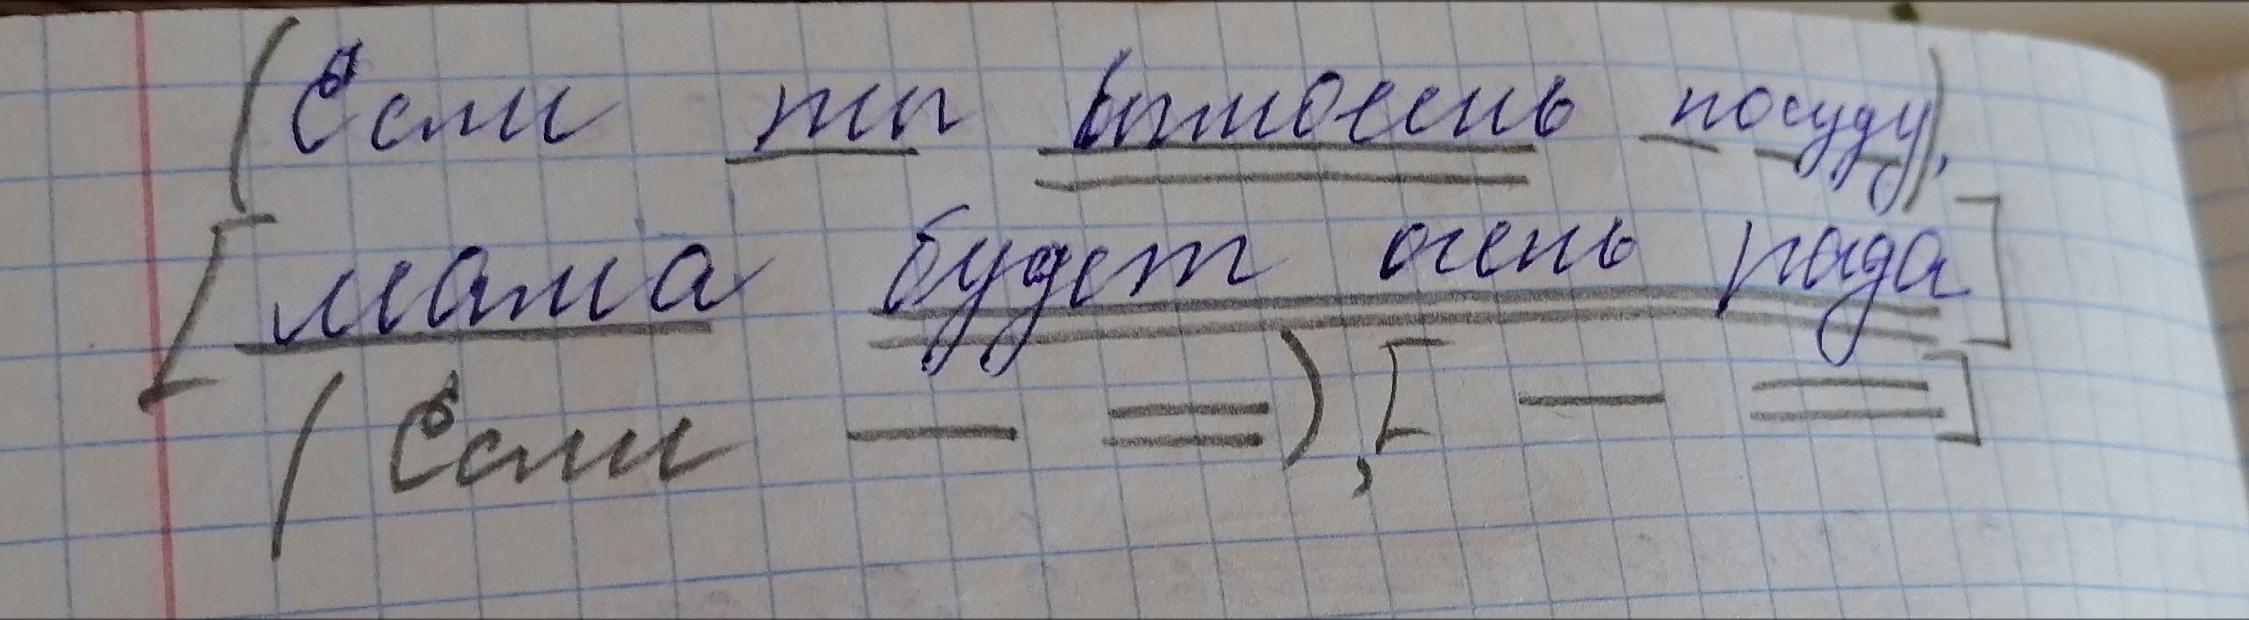 (Если ты вымоешь посуду),
[мама будет очень рада]
(Если — =), [ — = ]